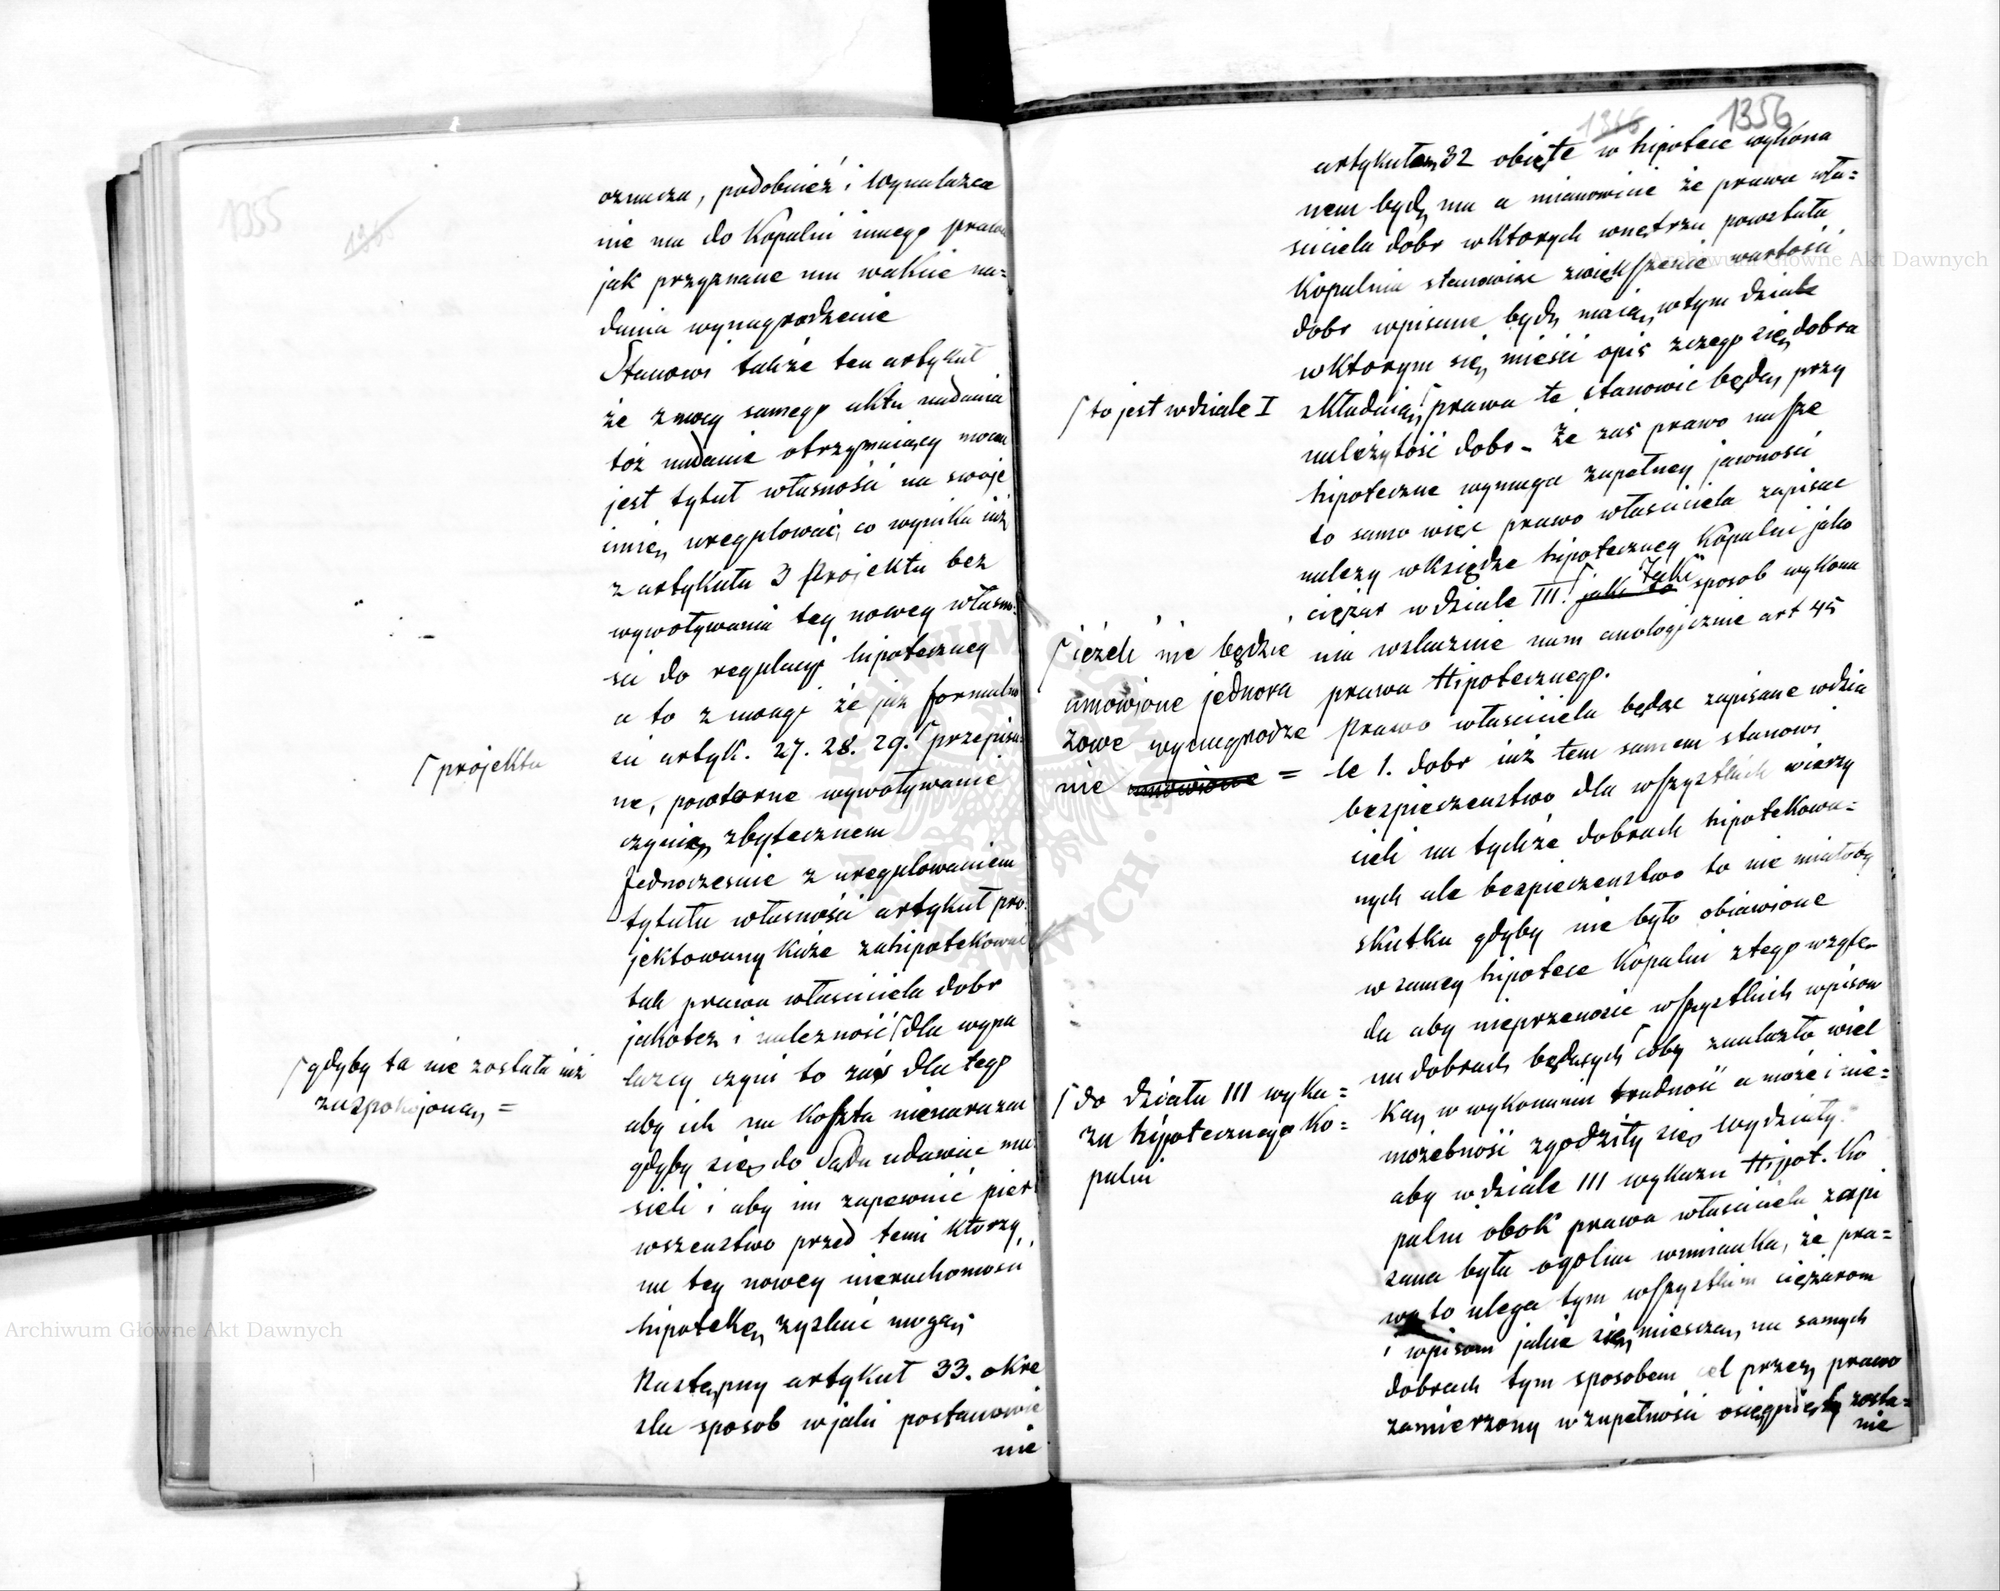 1355
oznacza, podobnież i wynalazca
nie ma do Kopalni innego prawa
jak przyznane mu wakcie na=
dania wynagrodzenie
Stanowi także ten artykuł
że zmocy samego aktu nadania
toż nadanie otrzymaiący mocen
jest tytuł własności na swoje
imię uregulować, co wynika iuż
z artykułu 3 Projektu bez
wywoływania tey nowey własno=
ści do regulacyi hipoteczney
a to z uwagi że już formalno
ści artyk. 27. 28. 29. ⌈przepisa=
ne, powtorne wywoływanie
czynią zbytecznem
⌈projektu
Jednocześnie z uregulowaniem
tytułu własności artykuł pro=
jektowany każe zahipotekować
tak prawa właściciela dobr
jakoteż i należność ⌈dla wyna
lazcy czyni to zaś dla tego
⌈gdyby ta nie została iuż
zaspokojoną =
aby ich na koszta nienarażać
gdyby się do Sądu udawać mu
sieli i aby im zapewnić pier
wszeństwo przed temi którzy
na tey nowey nieruchomości
hipotekę zyskać mogą
Następny artykuł 33. okre
śla sposob wjaki postanowie
nie
1356
artykułem 32 obięte w hipotece wykona
nem będą ma a mianowicie że prawa wła=
ściciela dobr wktorych wnętrzu powstała
Kopalnia stanowiąc zwiększenie wartości
dobr wpisane będą maią wtym dziale
wktorym się mieści opis zczego się dobra
składaią ⌈prawa te stanowić będą przy
⌈to jest wdziale I
należytość dobr – Że zaś prawo nasze
hipoteczne wymaga zupełney jawności
to samo więc prawo właściciela zapisać
należy wksiędze hipoteczney Kopalni jako
ciężar wdziale III. ⌈jaki to Jaki sposob wykona
nia wskazuie nam analogicznie art 45
prawa Hipotecznego.
⌈ieżeli nie będzie
umowione jednora
zowe wynagrodze
nie umowione =
Prawo właściciela będąc zapisane wdzia
le 1. dobr iuż tem samem stanowi
bezpieczenstwo dla wszystkich wierzy
cieli na tychże dobrach hipotekowa=
nych ale bezpieczenstwo to nie miałoby
skutku gdyby nie było obiawione
w samey hipotece Kopalni ztego wzglę=
du aby nieprzenosić wszystkich wpisow
na dobrach będących ⌈coby znalazło wiel
ką w wykonaniu trudność a może i nie=
możebność zgodziły się Wydziały
⌈do działu III wyka=
zu hipotecznego Ko=
palni
aby wdziale III wykazu Hipot. Ko
palni obok prawa właściciela zapi
sana była ogolna wzmianka, że pra=
wo to ulega tym wszystkim ciężarom
i wpisom jakie się mieszczą na samych
dobrach tym sposobem cel przez prawo
zamierzony wzupełności osiągnięty zosta=
nie
Archiwum Główne Akt Dawnych
Archiwum Główne Akt Dawnych